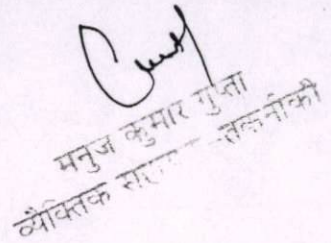 मनुज कुमार गुप्ता
व्यैक्तिक -तकनीकी